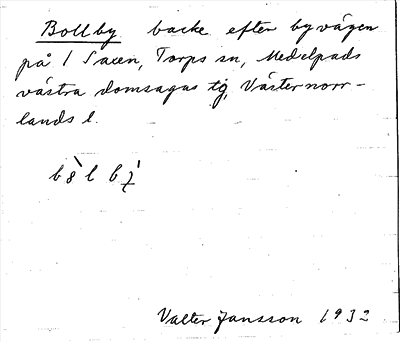 Bollby backe efter byvägen
på / Saxen, Torps sn, Medelpads
västra domsagas tg, Västernorr-
lands l.
Valter Jansson 1932